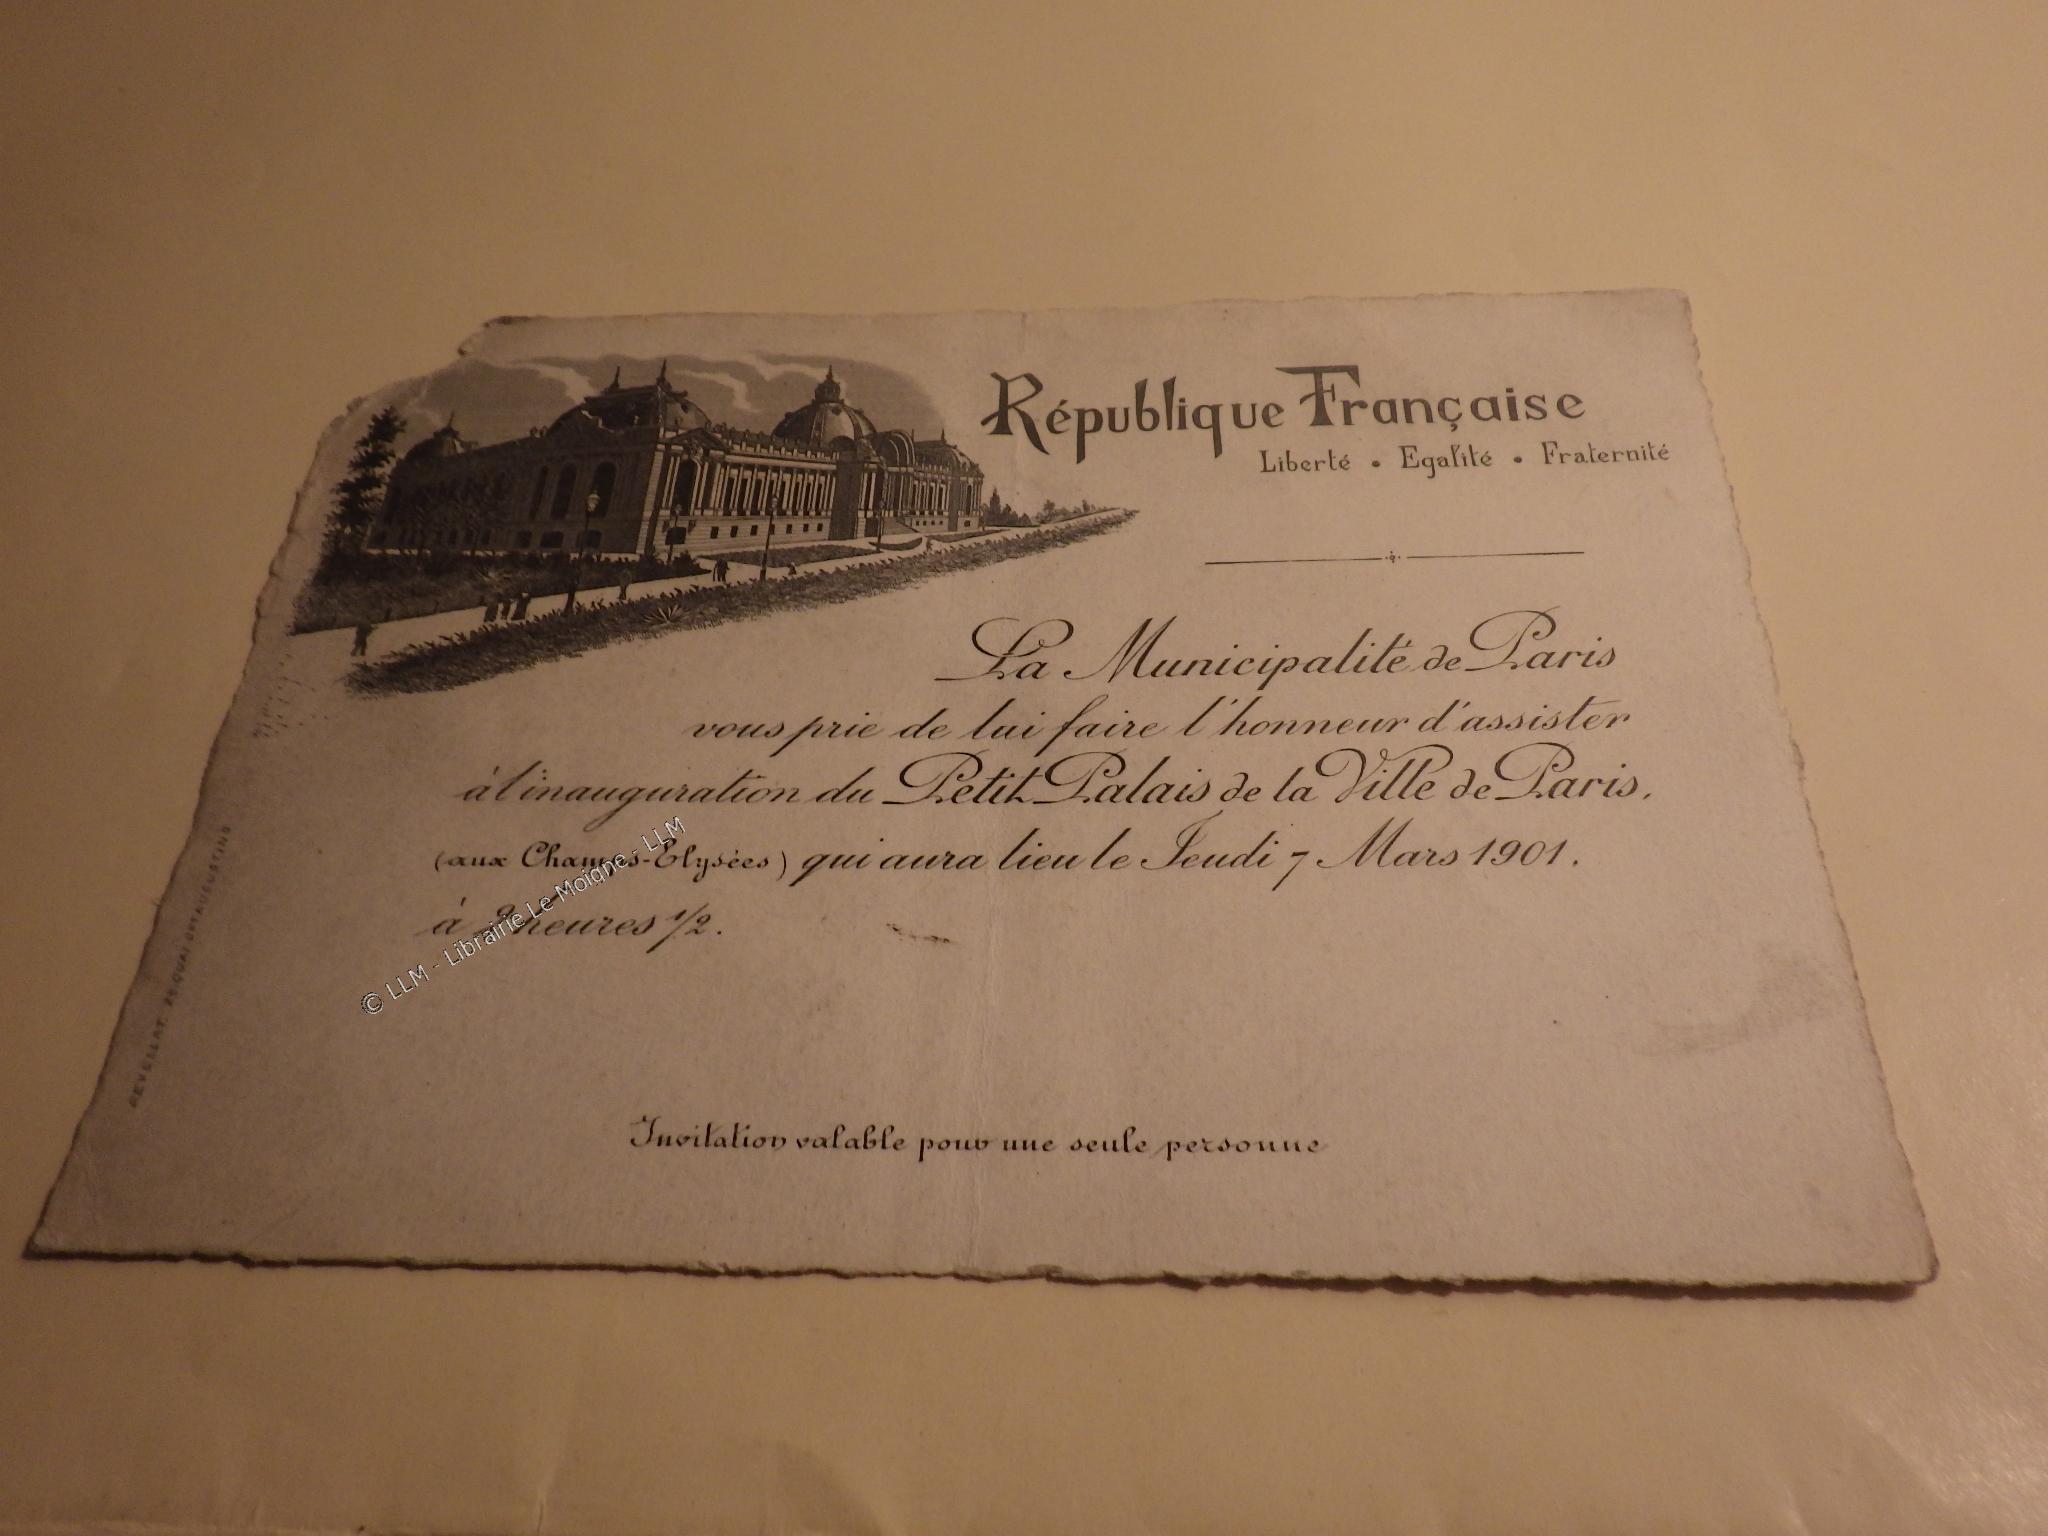 République Française
Liberté • Egalité • Fraternité
La Municipalité de Paris
vous prie de lui faire l'honneur d'assister
à l'inauguration du Petit Palais de la Ville de Paris,
(aux Champs-Elysées) qui aura lieu le Jeudi 7 Mars 1901.
à 2 heures 1/2.
Invitation valable pour une seule personne
REVELLAT, 25, QUAI DES Gds AUGUSTINS
© LLM - Librairie Le Moigne - LLM